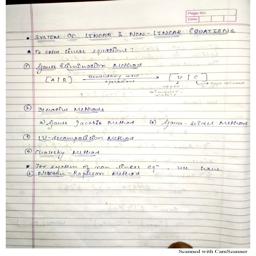 Page No.
Date
• SYSTEM OF LINEAR & NON-LINEAR EQUATIONS
* To solve linear equations:
① Gauss Elimination Method
[A|B] elementary row operations [U|C]
upper
② Iterative Methods
a) Gauss Jacobi Method (b) Gauss-Seidel Method
③ LU-decomposition Method
④ Cholesky Method
* For system of non linear eqⁿ, we have
① Newton-Raphson Method
Scanned with CamScanner